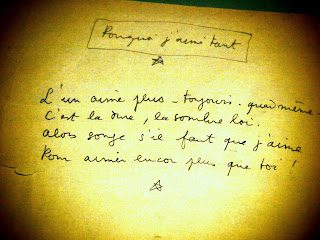 Pourquoi j'aime tant
L'un aime plus - toujours - quand même -
C'est la dure, la sombre loi.
Alors songe s'il faut que j'aime
Pour aimer encor plus que toi !